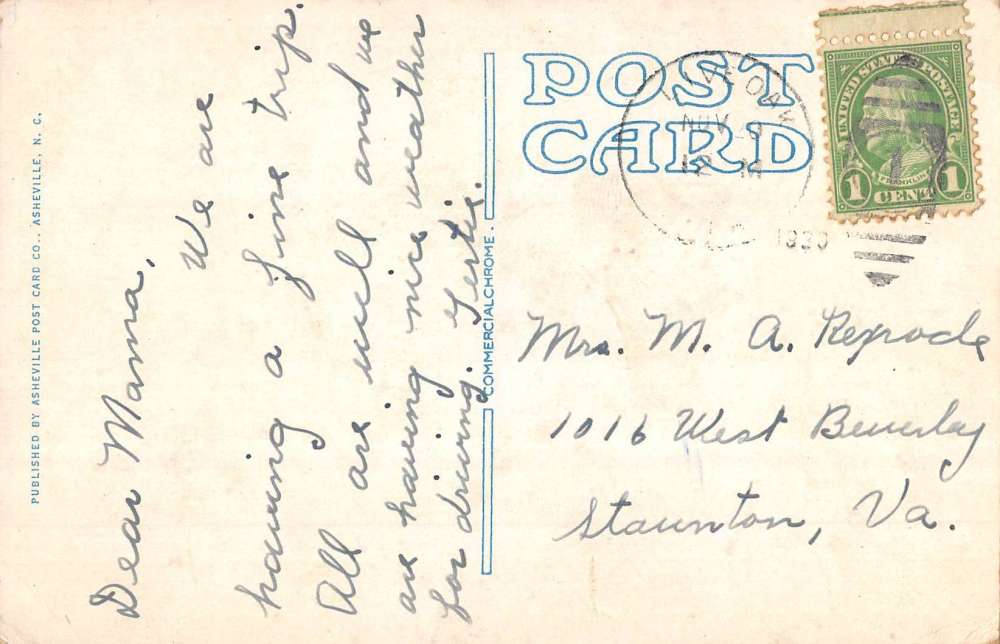 PUBLISHED BY ASHEVILLE POST CARD CO., ASHEVILLE, N. C.
Dear Mama,
We are
having a fine trip.
All are well and we
are having nice weather
for driving. Gertie.
COMMERCIALCHROME.
POST
CARD
LIVE OAK
NOV 9
12 M
UNITED STATES POSTAGE
FRANKLIN
1 CENT 1
Mrs. M. A.
1016 West Beverley
Staunton, Va.